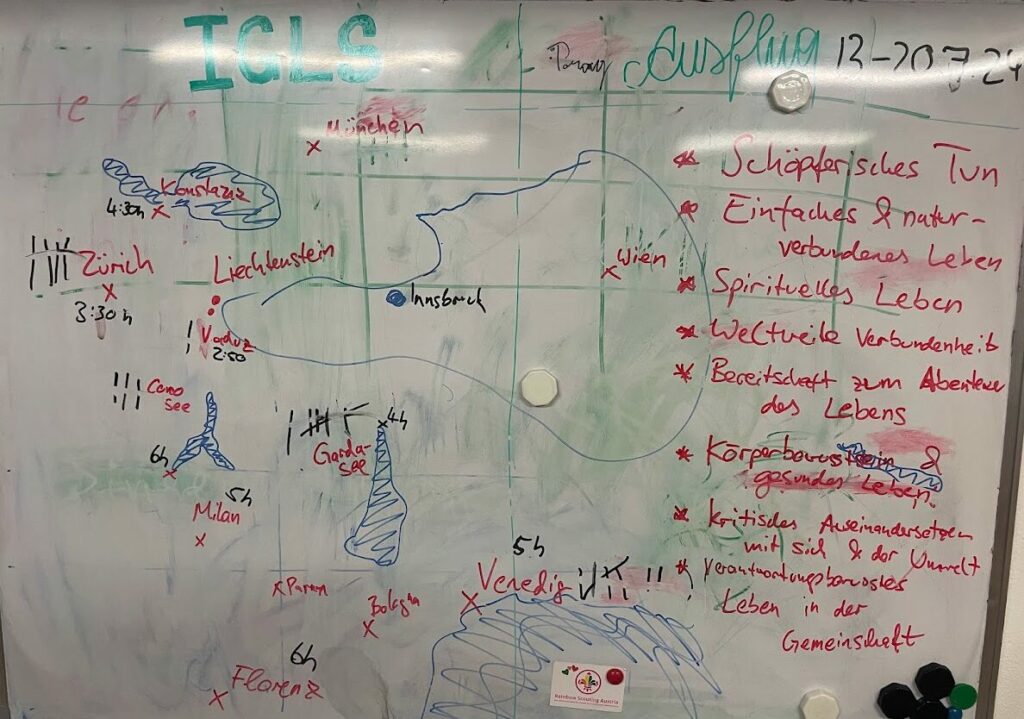 IGLS
Ausflug 13-20.7.24
München
Konstanz
4:30h
Zürich
3:30h
Liechtenstein
Vaduz
2:50
Innsbruck
Wien
Como
See
6h
5h
Milan
4h
Garda-
see
Venedig
5h
Param
Bologna
6h
Florenz
Schöpferisches Tun
Einfaches & natur-
verbundenes Leben
Spirituelles Leben
Weltweite Verbundenheit
Bereitschaft zum Abenteuer
des Lebens
Körperbewusstsein &
gesundes Leben
kritisches Auseinandersetzen
mit sich & der Umwelt
Verantwortungsbewusstes
Leben in der
Gemeinschaft
Rainbow Scouting Austria